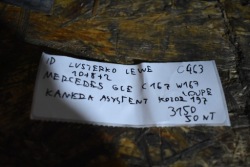 ID LUSTERKO LEWE C463
1018+2
MERCEDES GLE C167 W167
COUPE
KAMERA ASYSTENT KOLOR 197
3150
50 NT